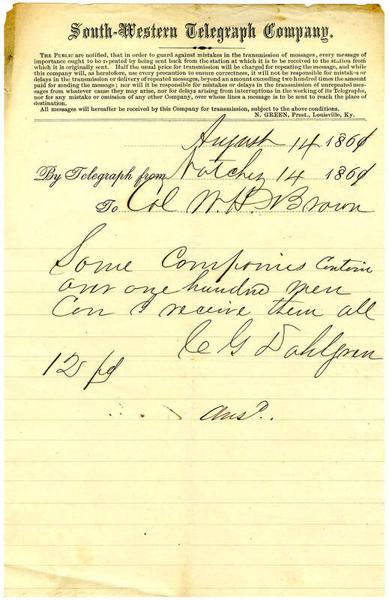 South-Western Telegraph Company.
THE PUBLIC are notified, that in order to guard against mistakes in the transmission of messages, every message of
importance ought to be repeated by being sent back from the station at which it is to be received to the station from
which it is originally sent. Half the usual price for transmission will be charged for repeating the message, and while
this company will, as heretofore, use every precaution to ensure correctness, it will not be responsible for mistakes or
delays in the transmission or delivery of repeated messages, beyond an amount exceeding two hundred times the amount
paid for sending the message; nor will it be responsible for mistakes or delays in the transmission of unrepeated messages
from whatever cause they may arise, nor for delays arising from interruptions in the working of its Telegraphs,
nor for any mistake or omission of any other Company, over whose lines a message is to be sent to reach the place of
destination.
All messages will hereafter be received by this Company for transmission, subject to the above conditions.
N. GREEN, Prest., Louisville, Ky.
August 14 186
By Telegraph from Natchez 14 186
To Col W. Brown
Some Companies Contain
over one hundred men
Can I receive them all
C G Dahlgren
12 pd
ansd.